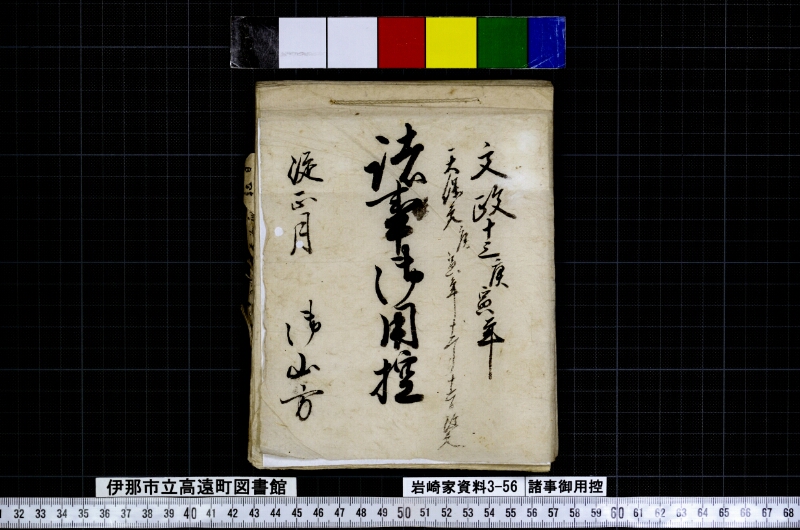 文政十三庚寅年
天保元庚寅年十二月十六日改元
諸事御用控
従正月
御山方
伊那市立高遠町図書館
岩崎家資料3-56
諸事御用控
32 33 34 35 36 37 38 39 40 41 42 43 44 45 46 47 48 49 50 51 52 53 54 55 56 57 58 59 60 61 62 63 64 65 66 67 68